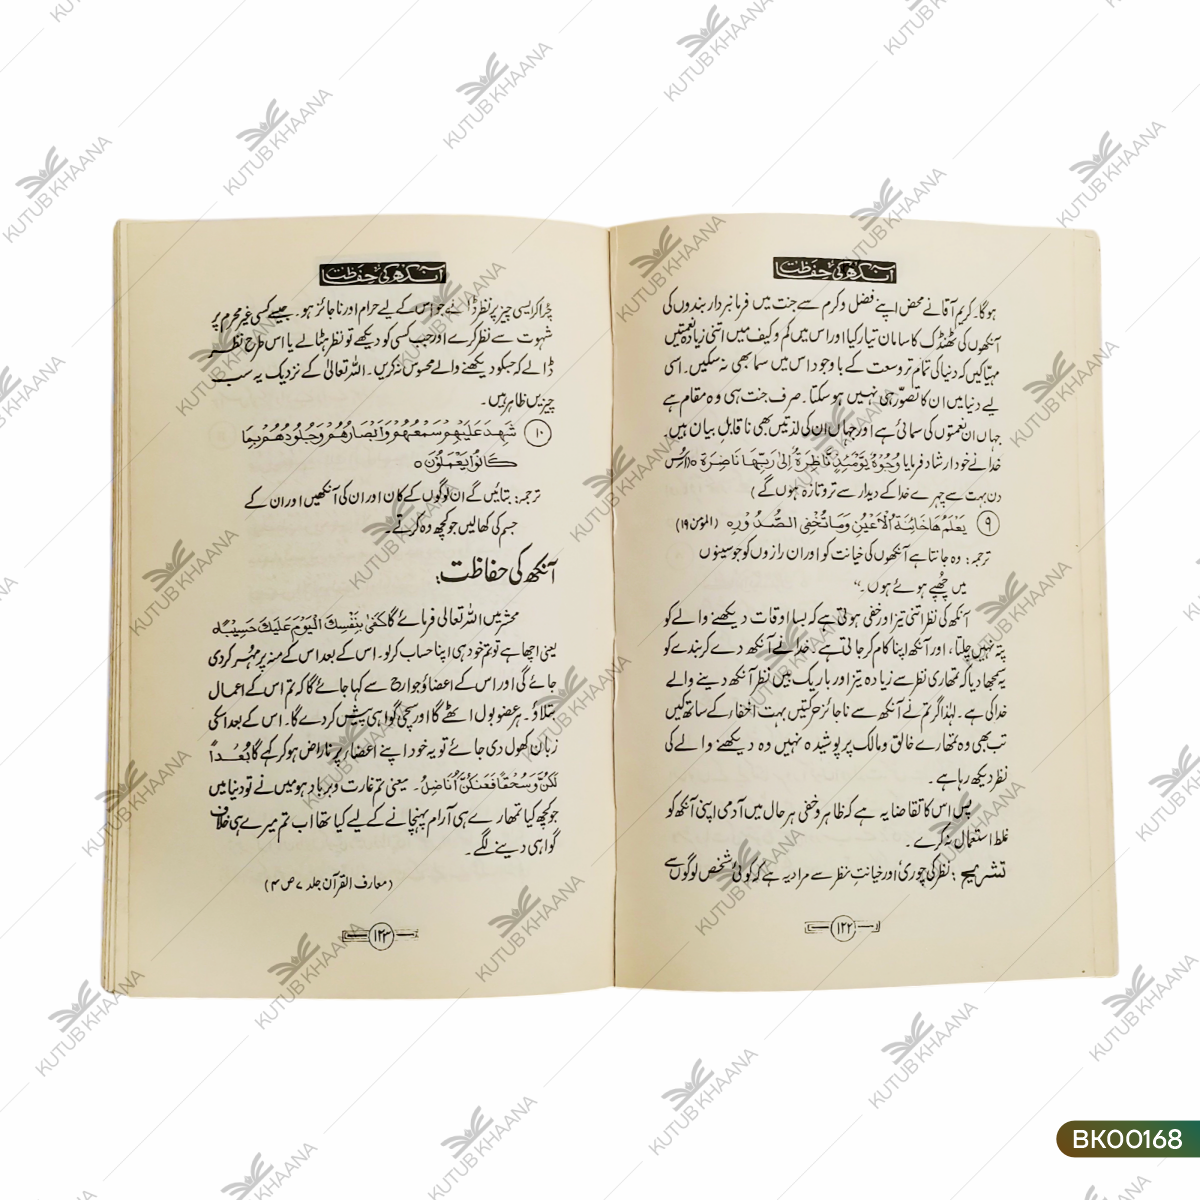 آنکھ کی حفاظت
ہوگا۔ کریم آقا نے محض اپنے فضل و کرم سے جنت میں فرمانبردار بندوں کی
آنکھوں کی ٹھنڈک کا سامان تیار کیا اور اس میں کم و کیف میں اتنی زیادہ نعمتیں
مہیا کیں کہ دنیا کی تمام تر وسعت کے باوجود اس میں سما بھی نہ سکیں۔ اسی
لیے دنیا میں ان کا تصوّر ہی نہیں ہو سکتا۔ صرف جنت ہی وہ مقام ہے
جہاں ان نعمتوں کی سمائی ہے اور جہاں ان کی لذتیں بھی ناقابل بیان ہیں
خدا نے خود ارشاد فرمایا وُجُوْهٌ يَّوْمَئِذٍ نَّاظِرَةٌ اِلٰى رَبِّهَا نَاضِرَةٌ ٥ (اس
دن بہت سے چہرے خدا کے دیدار سے تروتازہ ہوں گے)
۹ يَعْلَمُ خَائِنَةَ الْاَعْيُنِ وَمَا تُخْفِى الصُّدُوْرُ ٥ (المومن ۱۹)
ترجمہ: وہ جانتا ہے آنکھوں کی خیانت کو اور ان رازوں کو جو سینوں
میں چُھپے ہوئے ہوں۔"
آنکھ کی نظر اتنی تیز اور خفی ہوتی ہے کہ بسا اوقات دیکھنے والے کو
پتہ نہیں چلتا، اور آنکھ اپنا کام کر جاتی ہے۔ خدا نے آنکھ دے کر بندے کو
یہ سمجھا دیا کہ تمھاری نظر سے زیادہ تیز اور باریک بیں نظر آنکھ دینے والے
خدا کی ہے۔ لہٰذا اگر تم نے آنکھ سے ناجائز حرکتیں بہت اخفاء کے ساتھ کیں
تب بھی وہ تمھارے خالق و مالک پر پوشیدہ نہیں وہ دیکھنے والے کی
نظر دیکھ رہا ہے۔
پس اس کا تقاضا یہ ہے کہ ظاہر و خفی ہر حال میں آدمی اپنی آنکھ کو
غلط استعمال نہ کرے۔
تشریح: نظر کی چوری اور خیانتِ نظر سے مراد یہ ہے کہ کوئی شخص لوگوں سے
۱۲۲
آنکھ کی حفاظت
چُرا کر ایسی چیز پر نظر ڈالے جو اس کے لیے حرام اور ناجائز ہو۔ جیسے کسی غیر محرم پر
شہوت سے نظر کرے اور جب کسی کو دیکھے تو نظر ہٹالے یا اس طرح نظر
ڈالے کہ جسکو دیکھنے والے محسوس نہ کریں۔ اللہ تعالیٰ کے نزدیک یہ سب
چیزیں ظاہر ہیں۔
۱۰ شَهِدَ عَلَيْهِمْ سَمْعُهُمْ وَاَبْصَارُهُمْ وَجُلُوْدُهُمْ بِمَا
كَانُوْا يَعْمَلُوْنَ ٥
ترجمہ: بتائیں گے ان لوگوں کے کان اور ان کی آنکھیں اور ان کے
جسم کی کھالیں جو کچھ وہ کرتے۔
آنکھ کی حفاظت:
محشر میں اللہ تعالیٰ فرمائے گا كَفٰى بِنَفْسِكَ الْيَوْمَ عَلَيْكَ حَسِيْبًا ٥
یعنی اچھا ہے تو تم خود ہی اپنا حساب کر لو۔ اس کے بعد اس کے منہ پر مہر کر دی
جائے گی اور اس کے اعضاؤ جوارح سے کہا جائے گا کہ تم اس کے اعمال
بتلاؤ۔ ہر عضو بول اٹھے گا اور سچی گواہی پیش کر دے گا۔ اس کے بعد اسکی
زبان کھول دی جائے تو یہ خود اپنے اعضاء پر ناراض ہو کر کہے گا بُعْدًا
لَكُنَّ وَسُحْقًا فَعَنْكُنَّ اُنَاضِلُ۔ یعنی تم غارت و برباد ہو میں نے تو دنیا میں
جو کچھ کیا تمھارے ہی آرام پہنچانے کے لیے کیا تھا اب تم میرے ہی خلاف
گواہی دینے لگے۔
(معارف القرآن جلد ۷ ص ۴)
۱۲۳
KUTUB KHAANA
BK00168